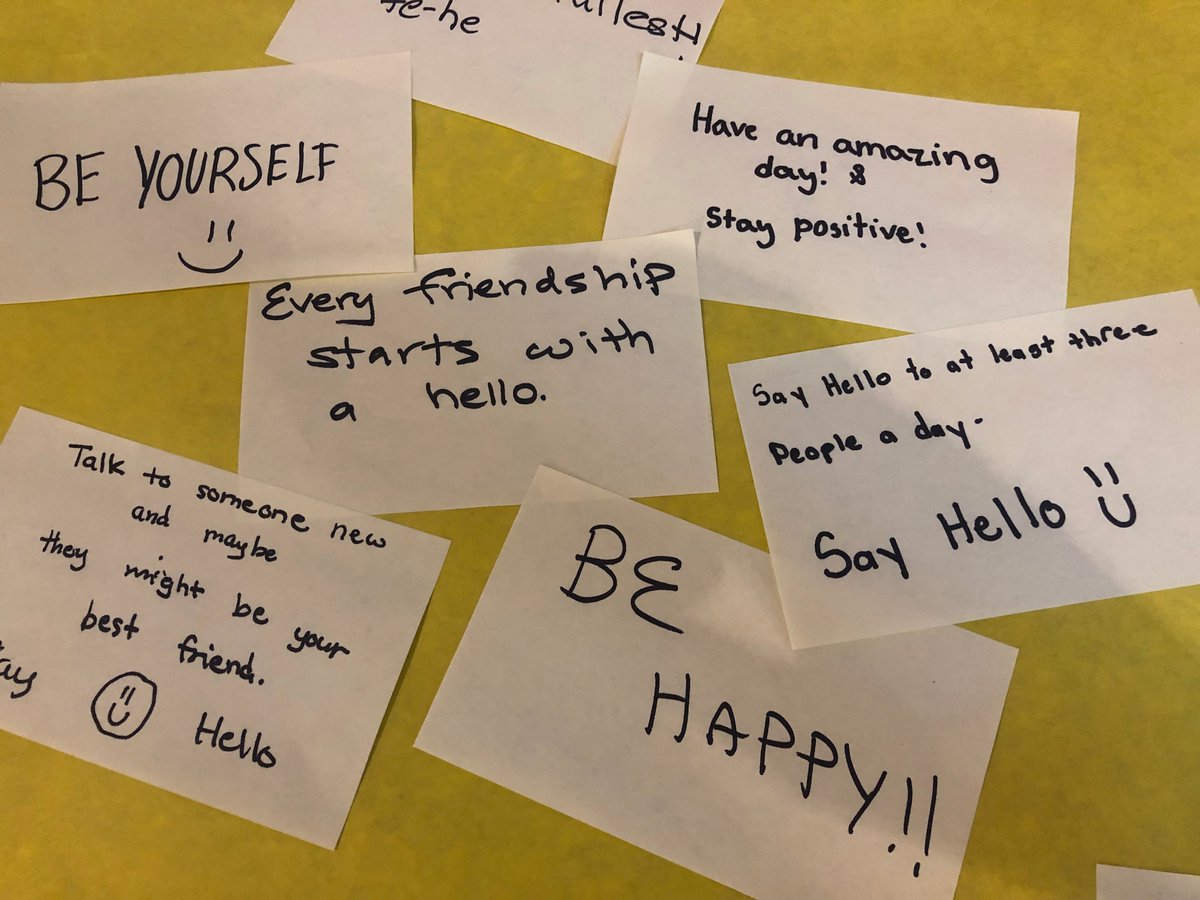 BE YOURSELF
Have an amazing
day! &
Stay positive!
Every friendship
starts with
a hello.
Say Hello to at least three
People a day-
Say Hello
Talk to someone new
and maybe
they might be your
best friend.
Hello
BE
HAPPY!!